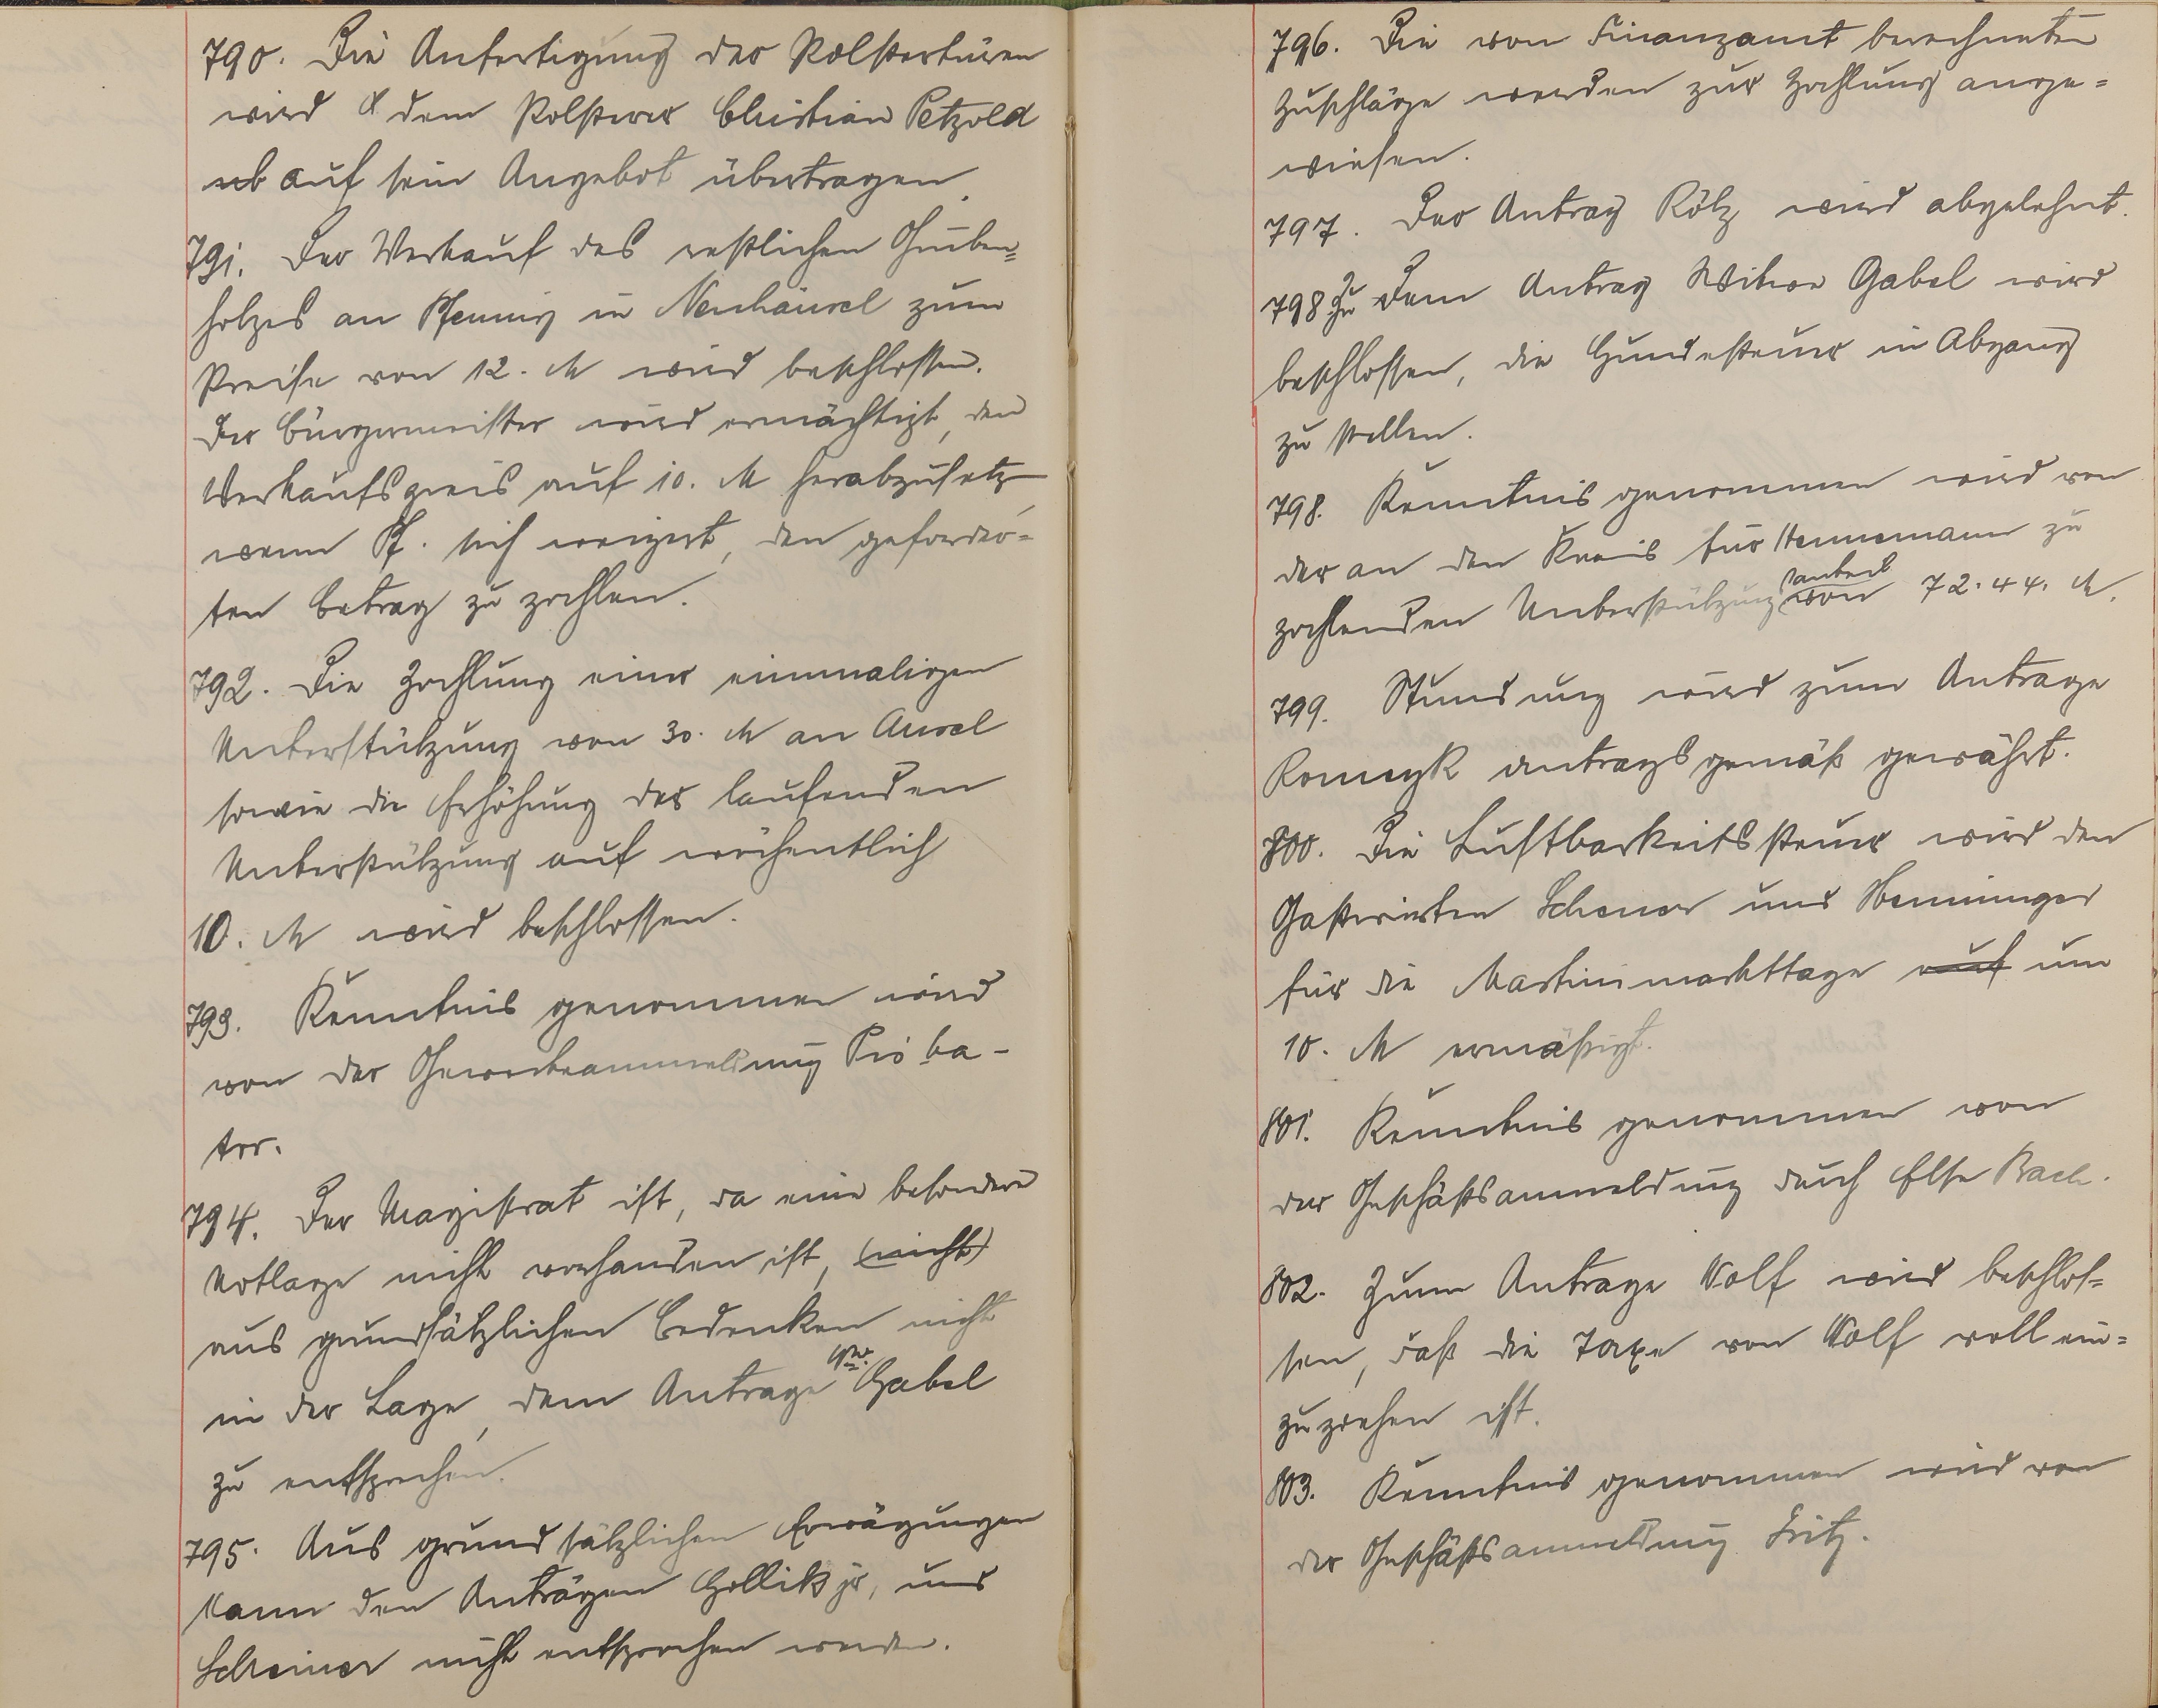 790. Die Anfertigung der Polstertüren
wird dem Polsterer Christian Petzold
auf sein Angebot übertragen.
791. Der Verkauf des restlichen Gruben=
holzes an Pfennig in Neuhäusel zum
Preise von 12. M wird beschlossen.
Der Bürgermeister wird ermächtigt, den
Verkaufspreis auf 10. M herabzusetzen,
wenn Pf. sich weigert, den geforder=
ten Betrag zu zahlen.
792. Die Zahlung einer einmaligen
Unterstützung von 30. M an Aurel
sowie die Erhöhung der laufenden
Unterstützung auf wöchentlich
10. M wird beschlossen.
793. Kenntnis genommen wird
von der Gewerbeanmeldung Pröba-
ter.
794. Der Magistrat ist, da eine besondere
Notlage nicht vorhanden ist, (nicht)
aus grundsätzlichen Bedenken nicht
in der Lage, dem Antrage Ww. Gabel
zu entsprechen.
795. Aus grundsätzlichen Erwägungen
kann den Anträgen Gollik jr, und
Schreiner nicht entsprochen werden.
796. Die vom Finanzamt berechneten
Zuschläge werden zur Zahlung ange=
wiesen.
797. Der Antrag Kölz wird abgelehnt.
798 Zu dem Antrag Witwe Gabel wird
beschlossen, die Hundesteuer in Abgang
zu stellen.
798. Kenntnis genommen wird von
der an den Kreis für Hennemann zu
zahlenden Unterstützung (anteil) von 72.44. M.
799. Stundung wird zum Antrage
Romczyk antragsgemäß gewährt.
800. Die Lustbarkeitssteuer wird den
Gastwirten Scheuer und Henninger
für die Martinimarkttage auf um
10. M ermäßigt.
801. Kenntnis genommen von
der Geschäftsanmeldung durch Else Bach.
802. Zum Antrage Wolf wird beschlos=
sen, daß die Taxe von Wolf voll ein=
zuziehen ist.
803. Kenntnis genommen wird von
der Geschäftsanmeldung Fritz.